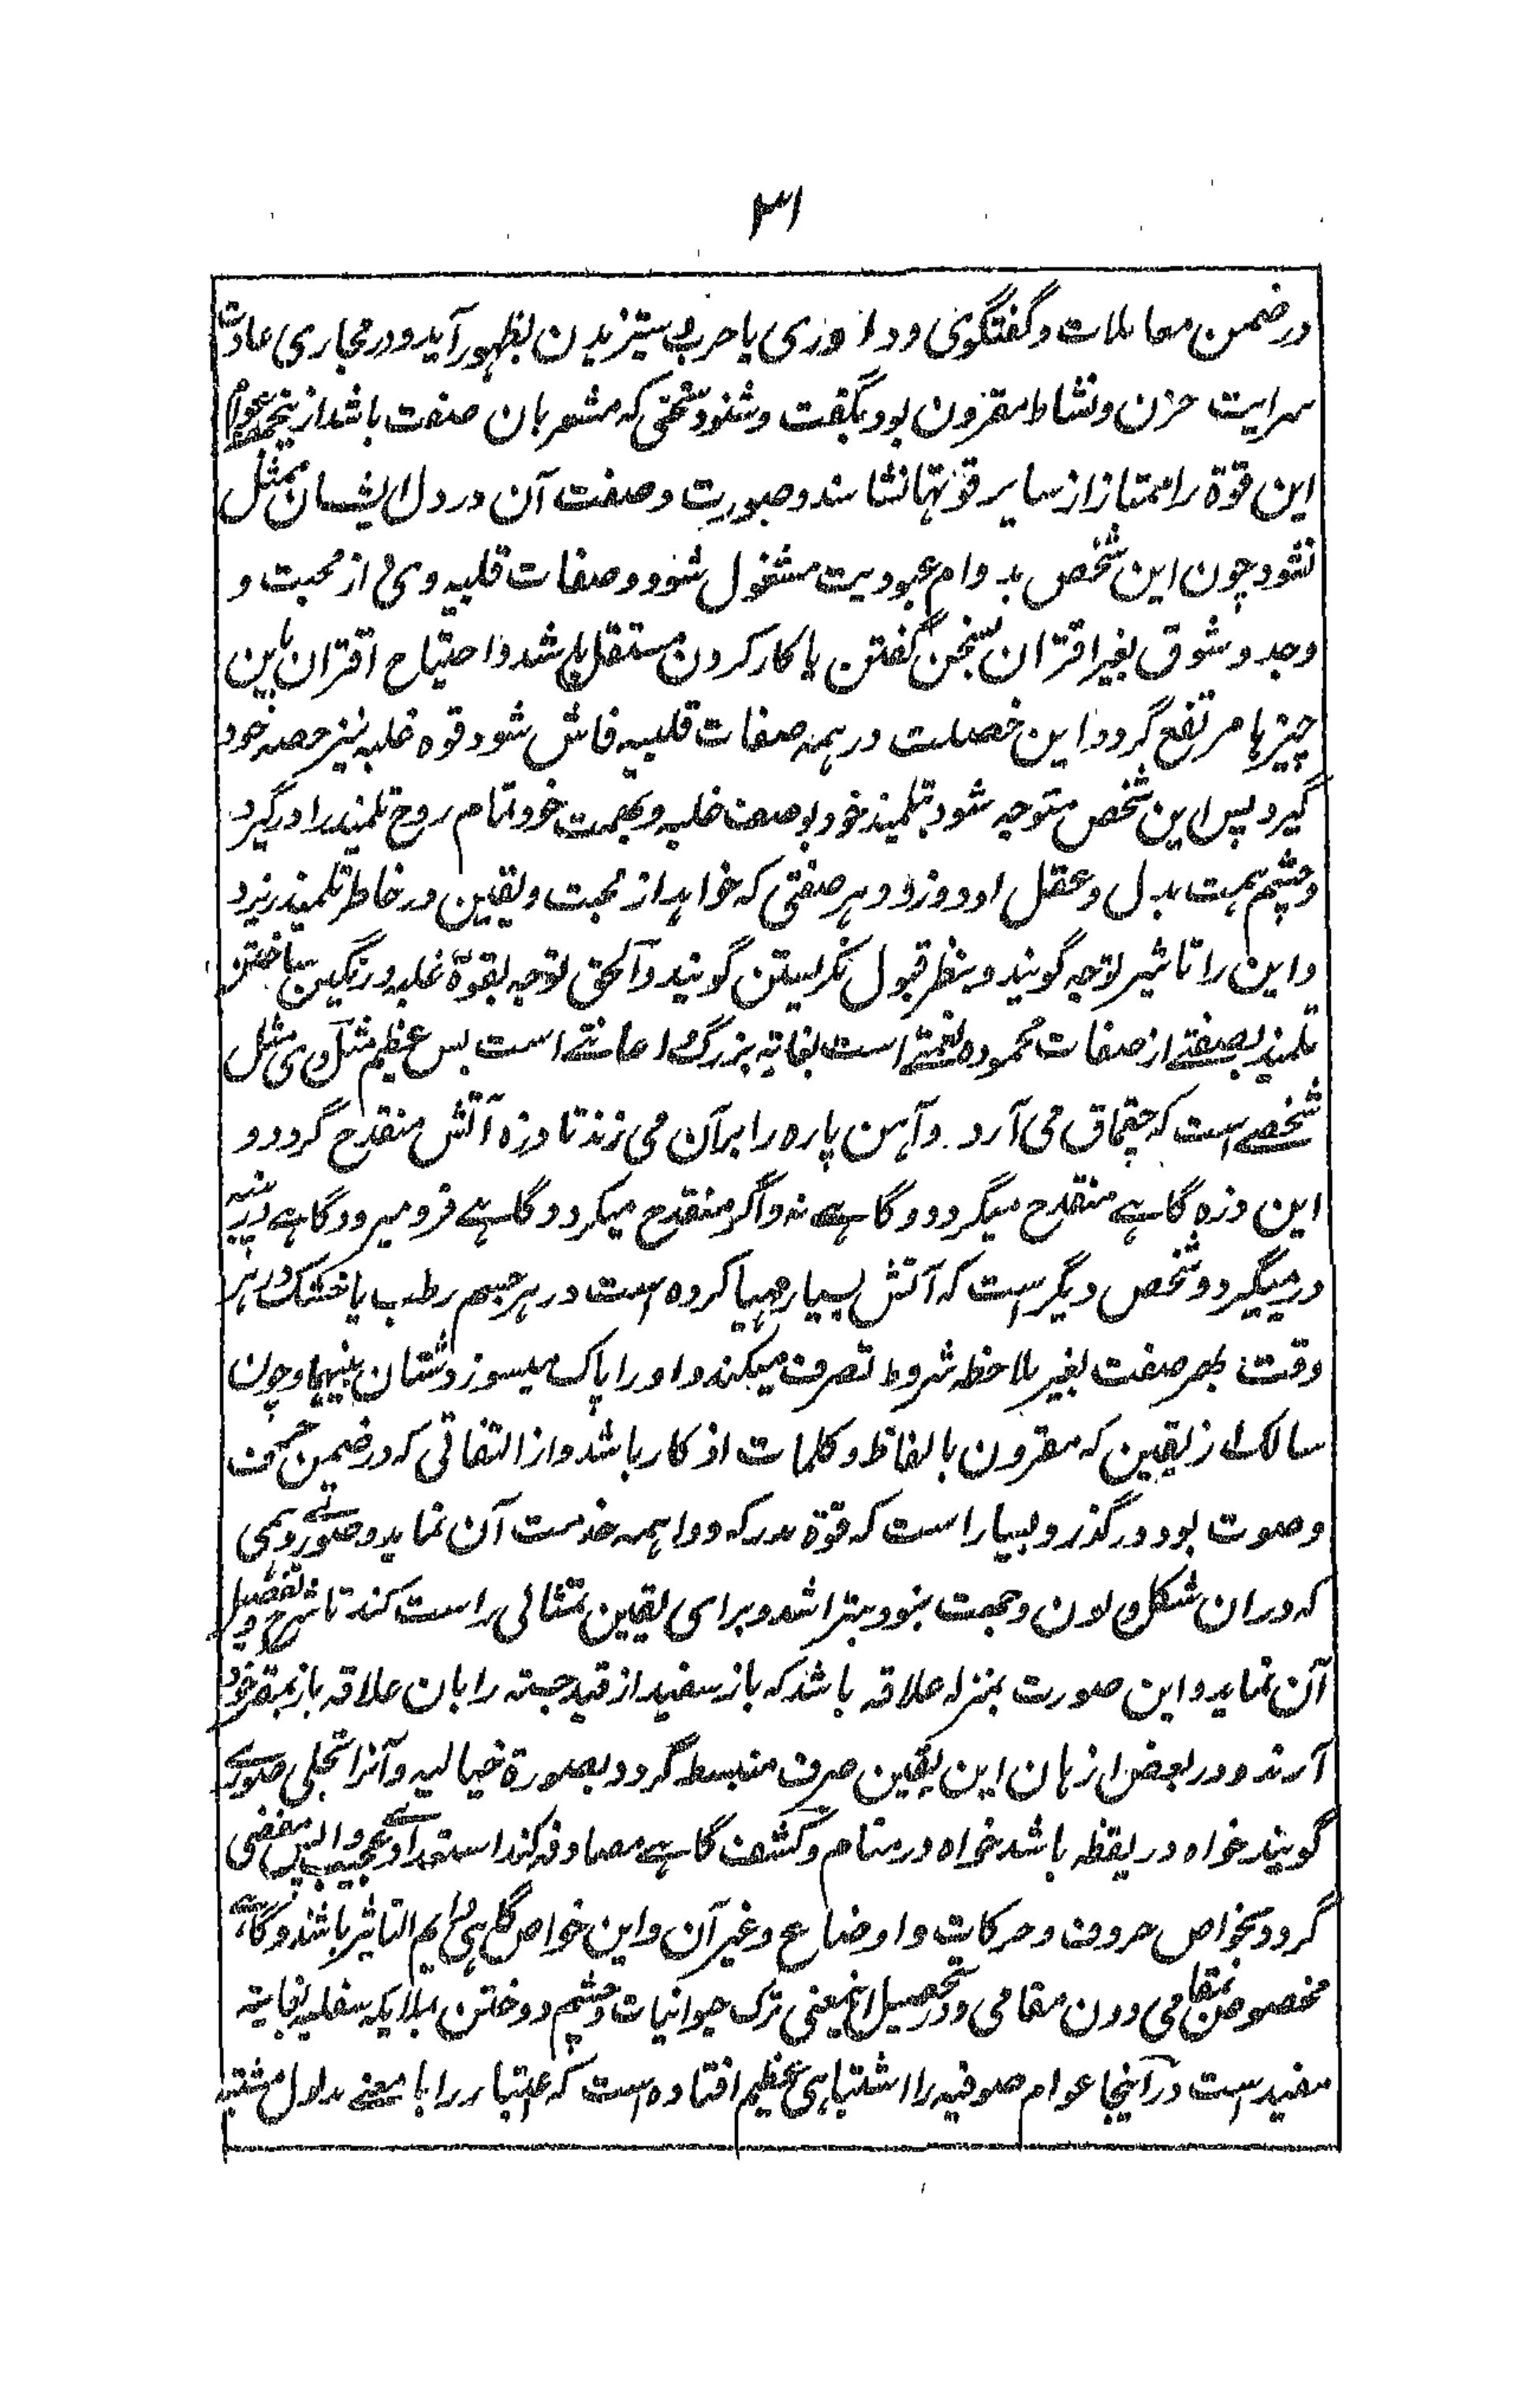 ۳۱
در ضمن معاملات و گفتگوی و داوری یا حربی ستیزیدن بظهور آید و در مجاری عادت
سرایت حزن و نشاط مقرون بود بگفت و شنود سخنی که مشعر بان صفت باشد ازینجهت عوام
این قوة را ممتاز از سایر قوتها نشناسند و صورت و صفت آن در دل ایشان متمثل
نشود چون این شخص بدوام عبودیت مشغول شود و صفات قلبیه وی از محبت و
وجد و شوق بغیر اقتران بسخن گفتن یا کار کردن مستقل باشد و احتیاج اقتران باین
چیزها مرتفع گردد این خصلت در همه صفات قلبیه فاش شود قوه غلبه نیز حصه خود
گیرد پس این شخص متوجه شود بتلمیذ خود بوصف غلبه و بهمت خود تمام روح تلمیذ را درگیرد
و چشم همت بدل و عقل او دوزد و هر صفتی که خواهد از محبت و یقین در خاطر تلمیذ ریزد
و این را تاثیر توجه گویند و بنظر قبول نگریستن گویند و آلحق توجه بقوة غلبه و رنگین ساختن
تلمیذ بصفتے از صفات محموده نعمتے است بغایة بزرگ و اعانتے است بس عظیم مثل وی مثل
شخصے است که چقماق می آرد و آهن پاره را بر آن می زند تا ذره آتش منقدح گردد و
این ذره گاہے منقدح میگردد و گاہے نه و اگر منقدح میگردد گاہے فرو میرود گاہے در پنبه
در میگیرد و شخص دیگر است که آتش بسیار مهیا کرده است در هر جسم رطب یا خشک در هر
وقت بهر صفت بغیر ملاحظه شروط تصرف میکند و او را پاک میسوزد شتان بینهما و چون
سالک از یقین که مقرون بالفاظ و کلمات اذکار باشد و از التفاتی که در ضمن حرف
و صوت بود در گذرد بسیار است که قوة مدرکه و واهمه خدمت آن نماید و صورتے وهمی
که در ان شکل و لون و جهت نبود بتراشد و برای یقین تمثالی راست کند تا شرح و تفصیل
آن نماید و این صورت بمنزله علاقه باشد که باز سفید از قید جسته را بان علاقه باز بمقر خود
آرند و در بعض اذهان این یقین صرف منبسط گردد بصورة خیالیه و آنرا تجلی صوری
گویند خواه در یقظه باشد خواه در منام و کشف گاہے مصادفه کند استعدادے عجیب را پس مفضی
گردد بخواص حروف و حرکات و اوضاع و غیر آن و این خواص گاهی دایم التاثیر باشد و گاہے
مخصوص بمقامی دون مقامی و در تحصیل اینمعنی ترک حیوانیات و چشم دوختن بملایکه سفلیه بغایة
مفید است در آنجا عوام صوفیه را اشتباهی عظیم افتاده است که اعتبار را با معنے مدلول مشتبه